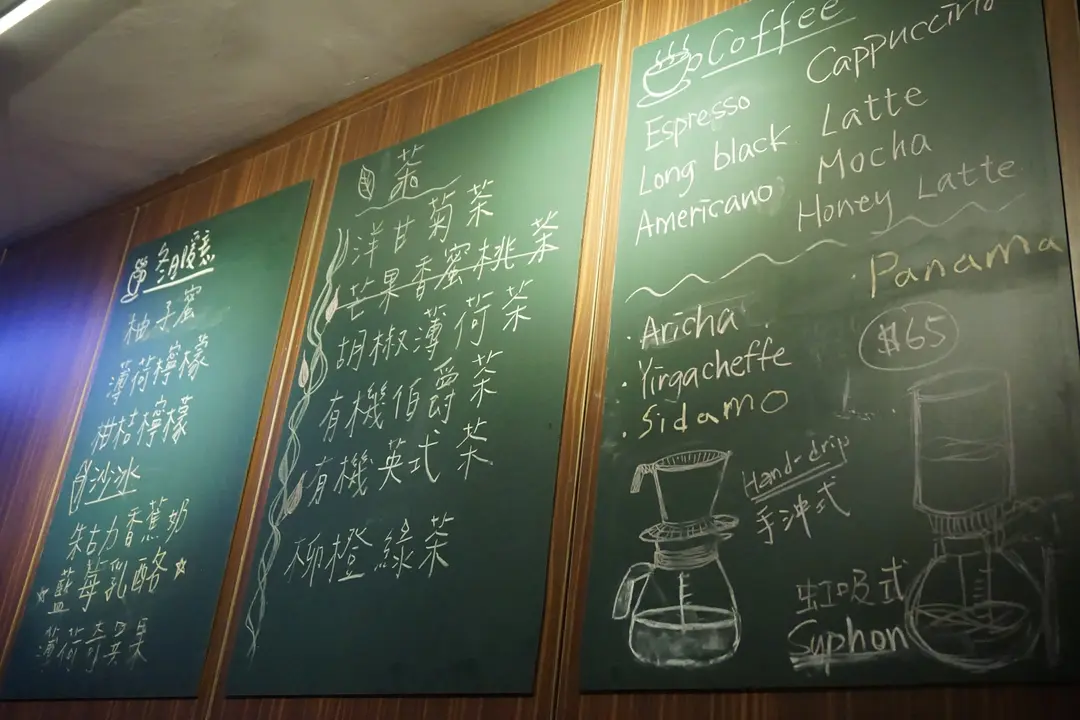 冬日暖意
柚子蜜
薄荷檸檬
柑桔檸檬
沙冰
朱古力香蕉奶
藍莓乳酪
薄荷奇異果
茶
洋甘菊茶
芒果香蜜桃茶
胡椒薄荷茶
有機伯爵茶
有機英式茶
柳橙綠茶
Coffee
Espresso
Long black
Americano
Cappuccino
Latte
Mocha
Honey Latte
Aricha
Yirgacheffe
Sidamo
Panama
$65
Hand-drip
手沖式
虹吸式
Syphon